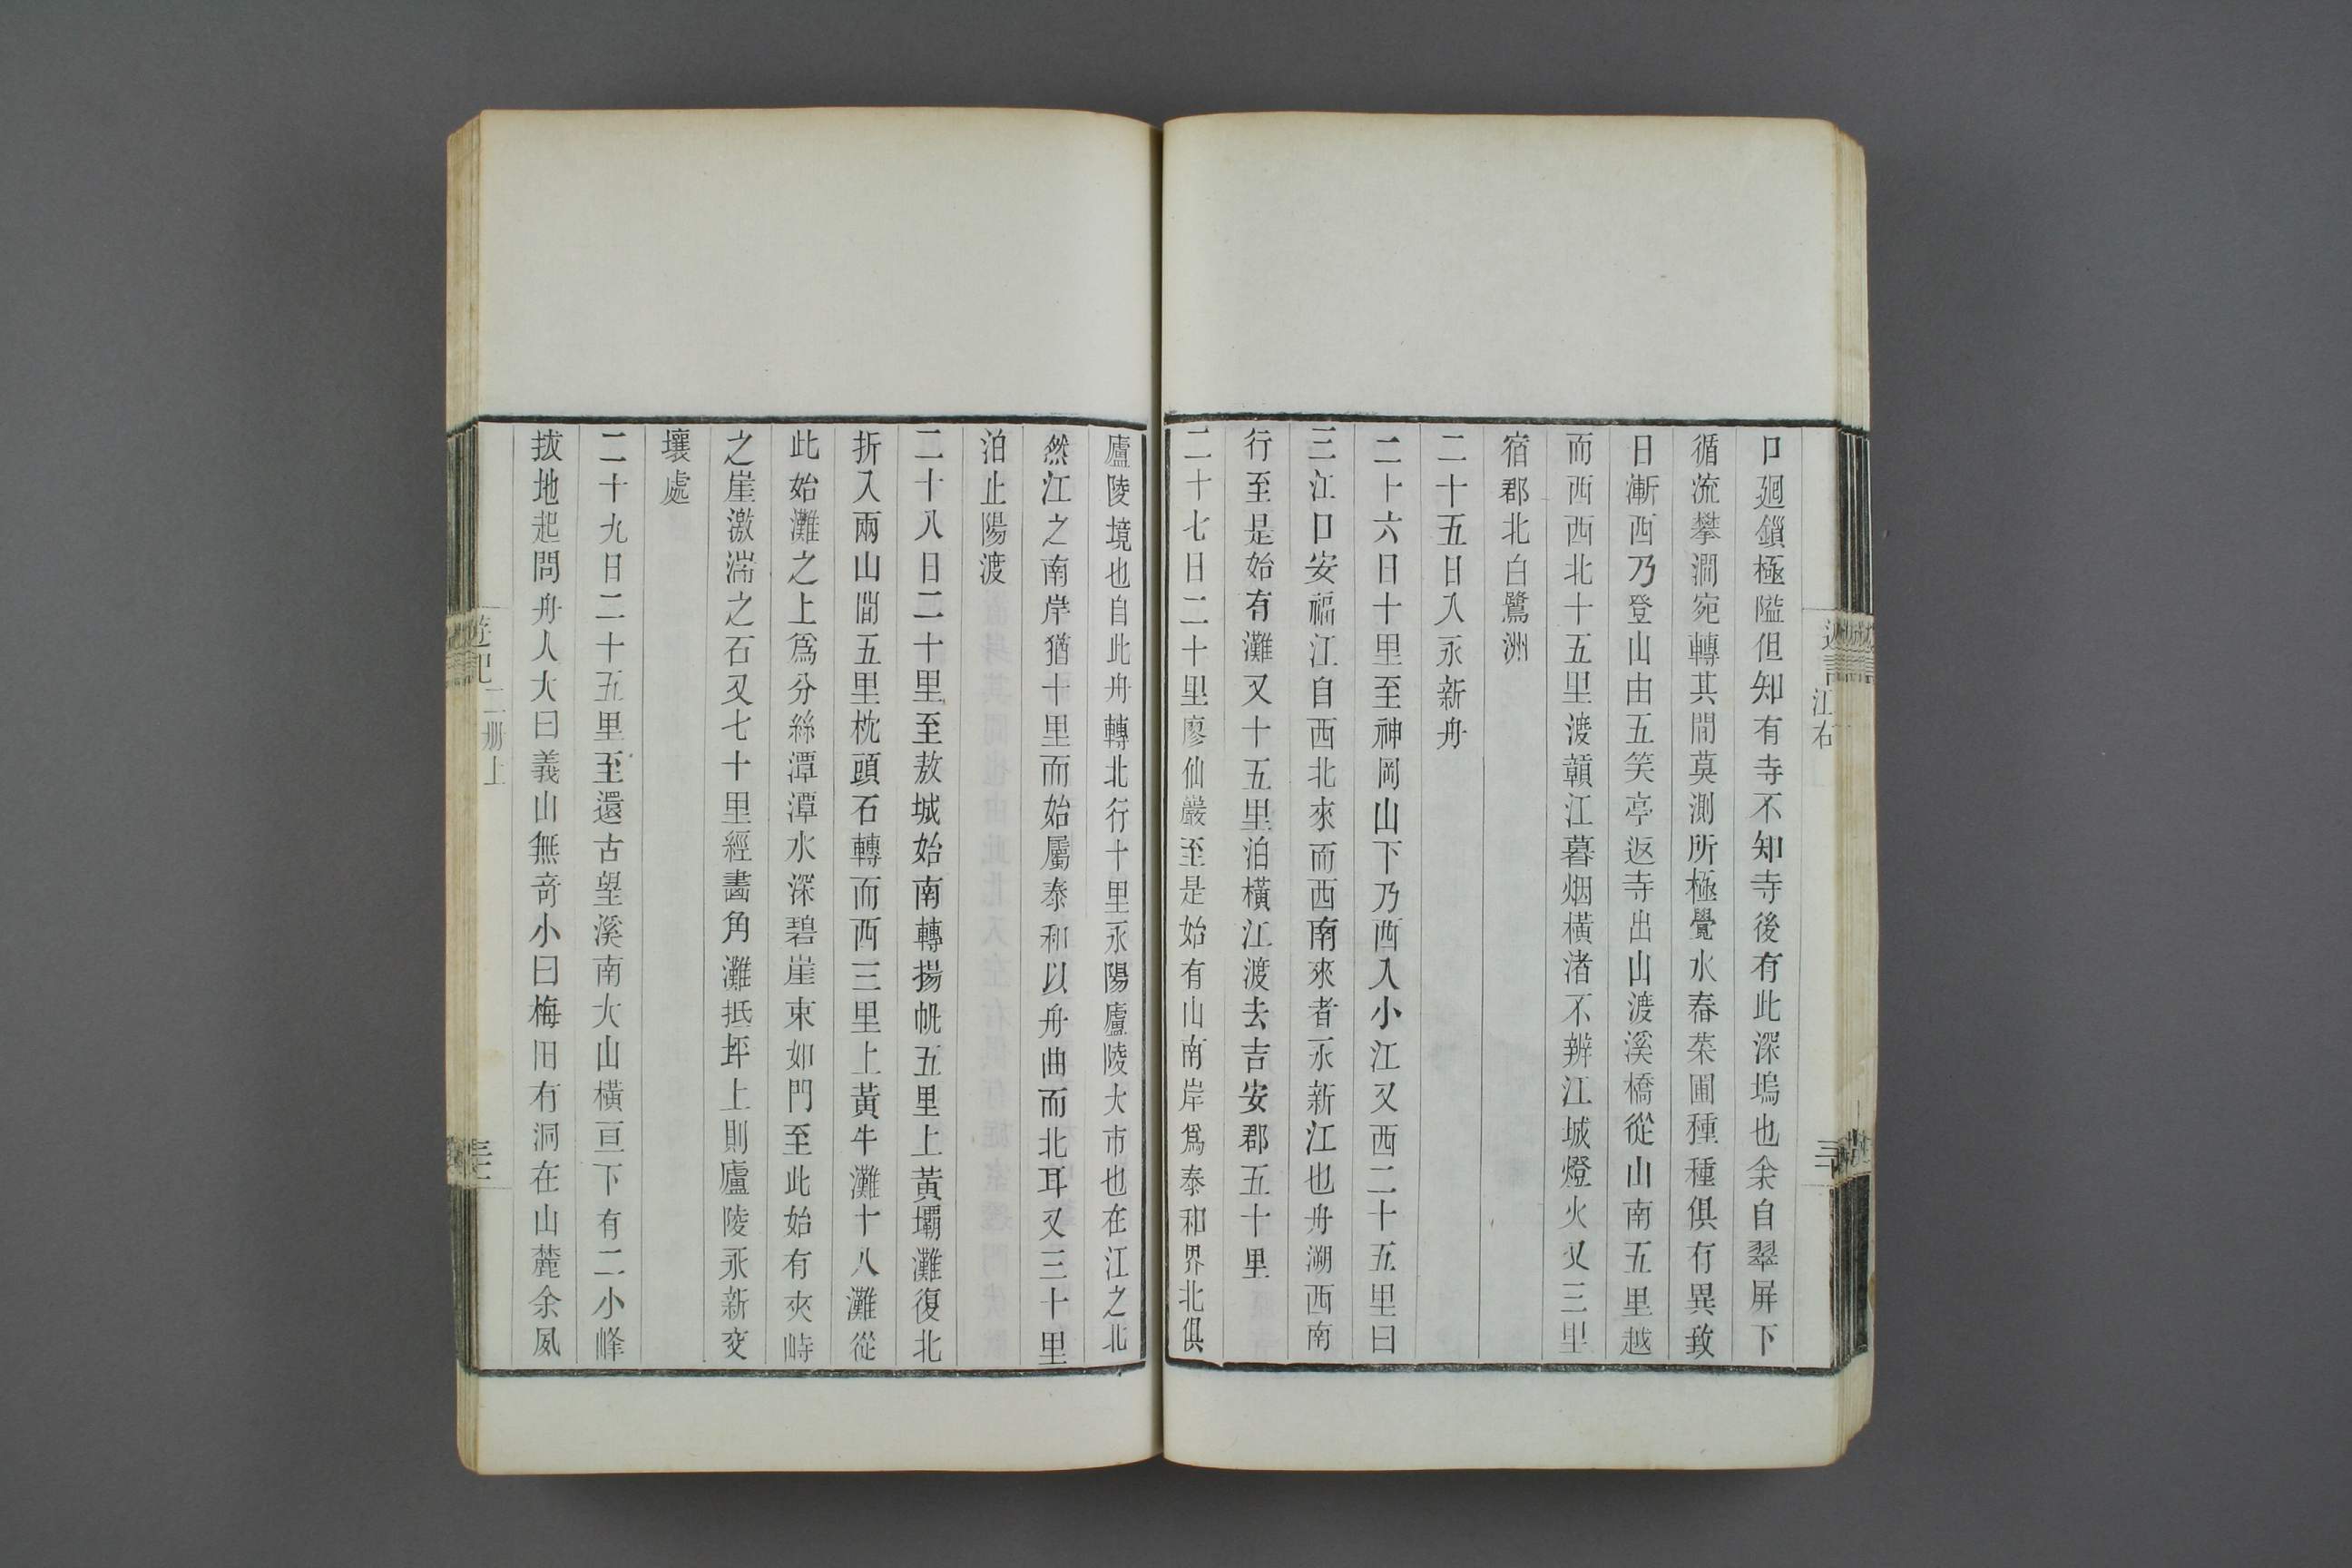 口廻鎖極隘但知有寺不知寺後有此深塢也余自翠屏下
循流攀澗宛轉其間莫測所極覺水舂菜圃種種俱有異致
日漸西乃登山由五笑亭返寺出山渡溪橋從山南五里越
而西西北十五里渡贑江暮烟橫渚不辨江城燈火又三里
宿郡北白鷺洲
二十五日入永新舟
二十六日十里至神岡山下乃西入小江又西二十五里曰
三江口安福江自西北來而西南來者永新江也舟溯西南
行至是始有灘又十五里泊橫江渡去吉安郡五十里
二十七日二十里廖仙巖至是始有山南岸爲泰和界北俱
廬陵境也自此舟轉北行十里永陽廬陵大市也在江之北
然江之南岸猶十里而始屬泰和以舟曲而北耳又三十里
泊止陽渡
二十八日二十里至敖城始南轉揚帆五里上黃壩灘復北
折入兩山間五里枕頭石轉而西三里上黃牛灘十八灘從
此始灘之上爲分絲潭潭水深碧崖束如門至此始有夾峙
之崖激湍之石又七十里經畵角灘抵坪上則廬陵永新交
壤處
二十九日二十五里至還古望溪南大山橫亘下有二小峰
拔地起問舟人大曰義山無竒小曰梅田有洞在山麓余夙
江右
遊記
二册上